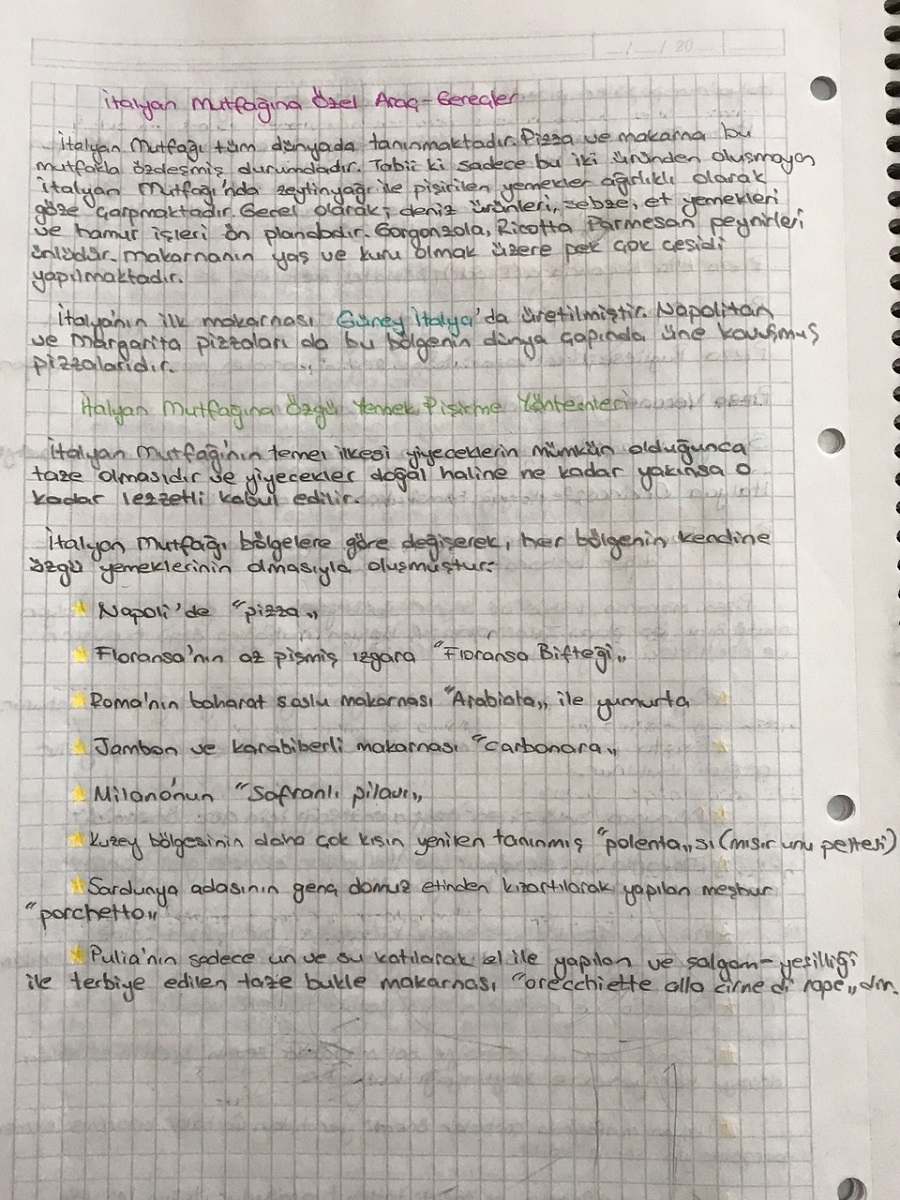 / / 20
İtalyan Mutfağına Özel Araç-Gereçler
İtalyan Mutfağı tüm dünyada tanınmaktadır. Pizza ve makarna bu
mutfakla özdeşmiş durumdadır. Tabii ki sadece bu iki üründen oluşmayan
İtalyan Mutfağı'nda zeytinyağı ile pişirilen yemekler ağırlıklı olarak
göze çarpmaktadır. Genel olarak; deniz ürünleri, sebze, et yemekleri
ve hamur işleri ön plandadır. Gorgonzola, Ricotta Parmesan peynirleri
ünlüdür. makarnanın yaş ve kuru olmak üzere pek çok çeşidi
yapılmaktadır.
İtalya'nın ilk makarnası Güney İtalya'da üretilmiştir. Napolitan
ve Margarita pizzaları da bu bölgenin dünya çapında üne kavuşmuş
pizzalarıdır.
İtalyan Mutfağına Özgü Yemek Pişirme Yöntemleri
İtalyan Mutfağı'nın temel ilkesi yiyeceklerin mümkün olduğunca
taze olmasıdır ve yiyecekler doğal haline ne kadar yakınsa o
kadar lezzetli kabul edilir.
İtalyan Mutfağı bölgelere göre değişerek, her bölgenin kendine
özgü yemeklerinin olmasıyla oluşmuştur:
Napoli'de "pizza„
Floransa'nın az pişmiş ızgara "Floransa Bifteği„
Roma'nın baharat soslu makarnası "Arabiata„ ile yumurta
Jambon ve karabiberli makarnası "carbonara„
Milano'nun "Safranlı pilavı„
Kuzey bölgesinin daha çok kışın yenilen tanınmış "polenta„sı (mısır unu peltesi)
Sardunya adasının genç domuz etinden kızartılarak yapılan meşhur
"porchetto„
Pulia'nın sadece un ve su katılarak el ile yapılan ve şalgam-yeşilliği
ile terbiye edilen taze bukle makarnası "orecchiette alla cirne di rape„dır.